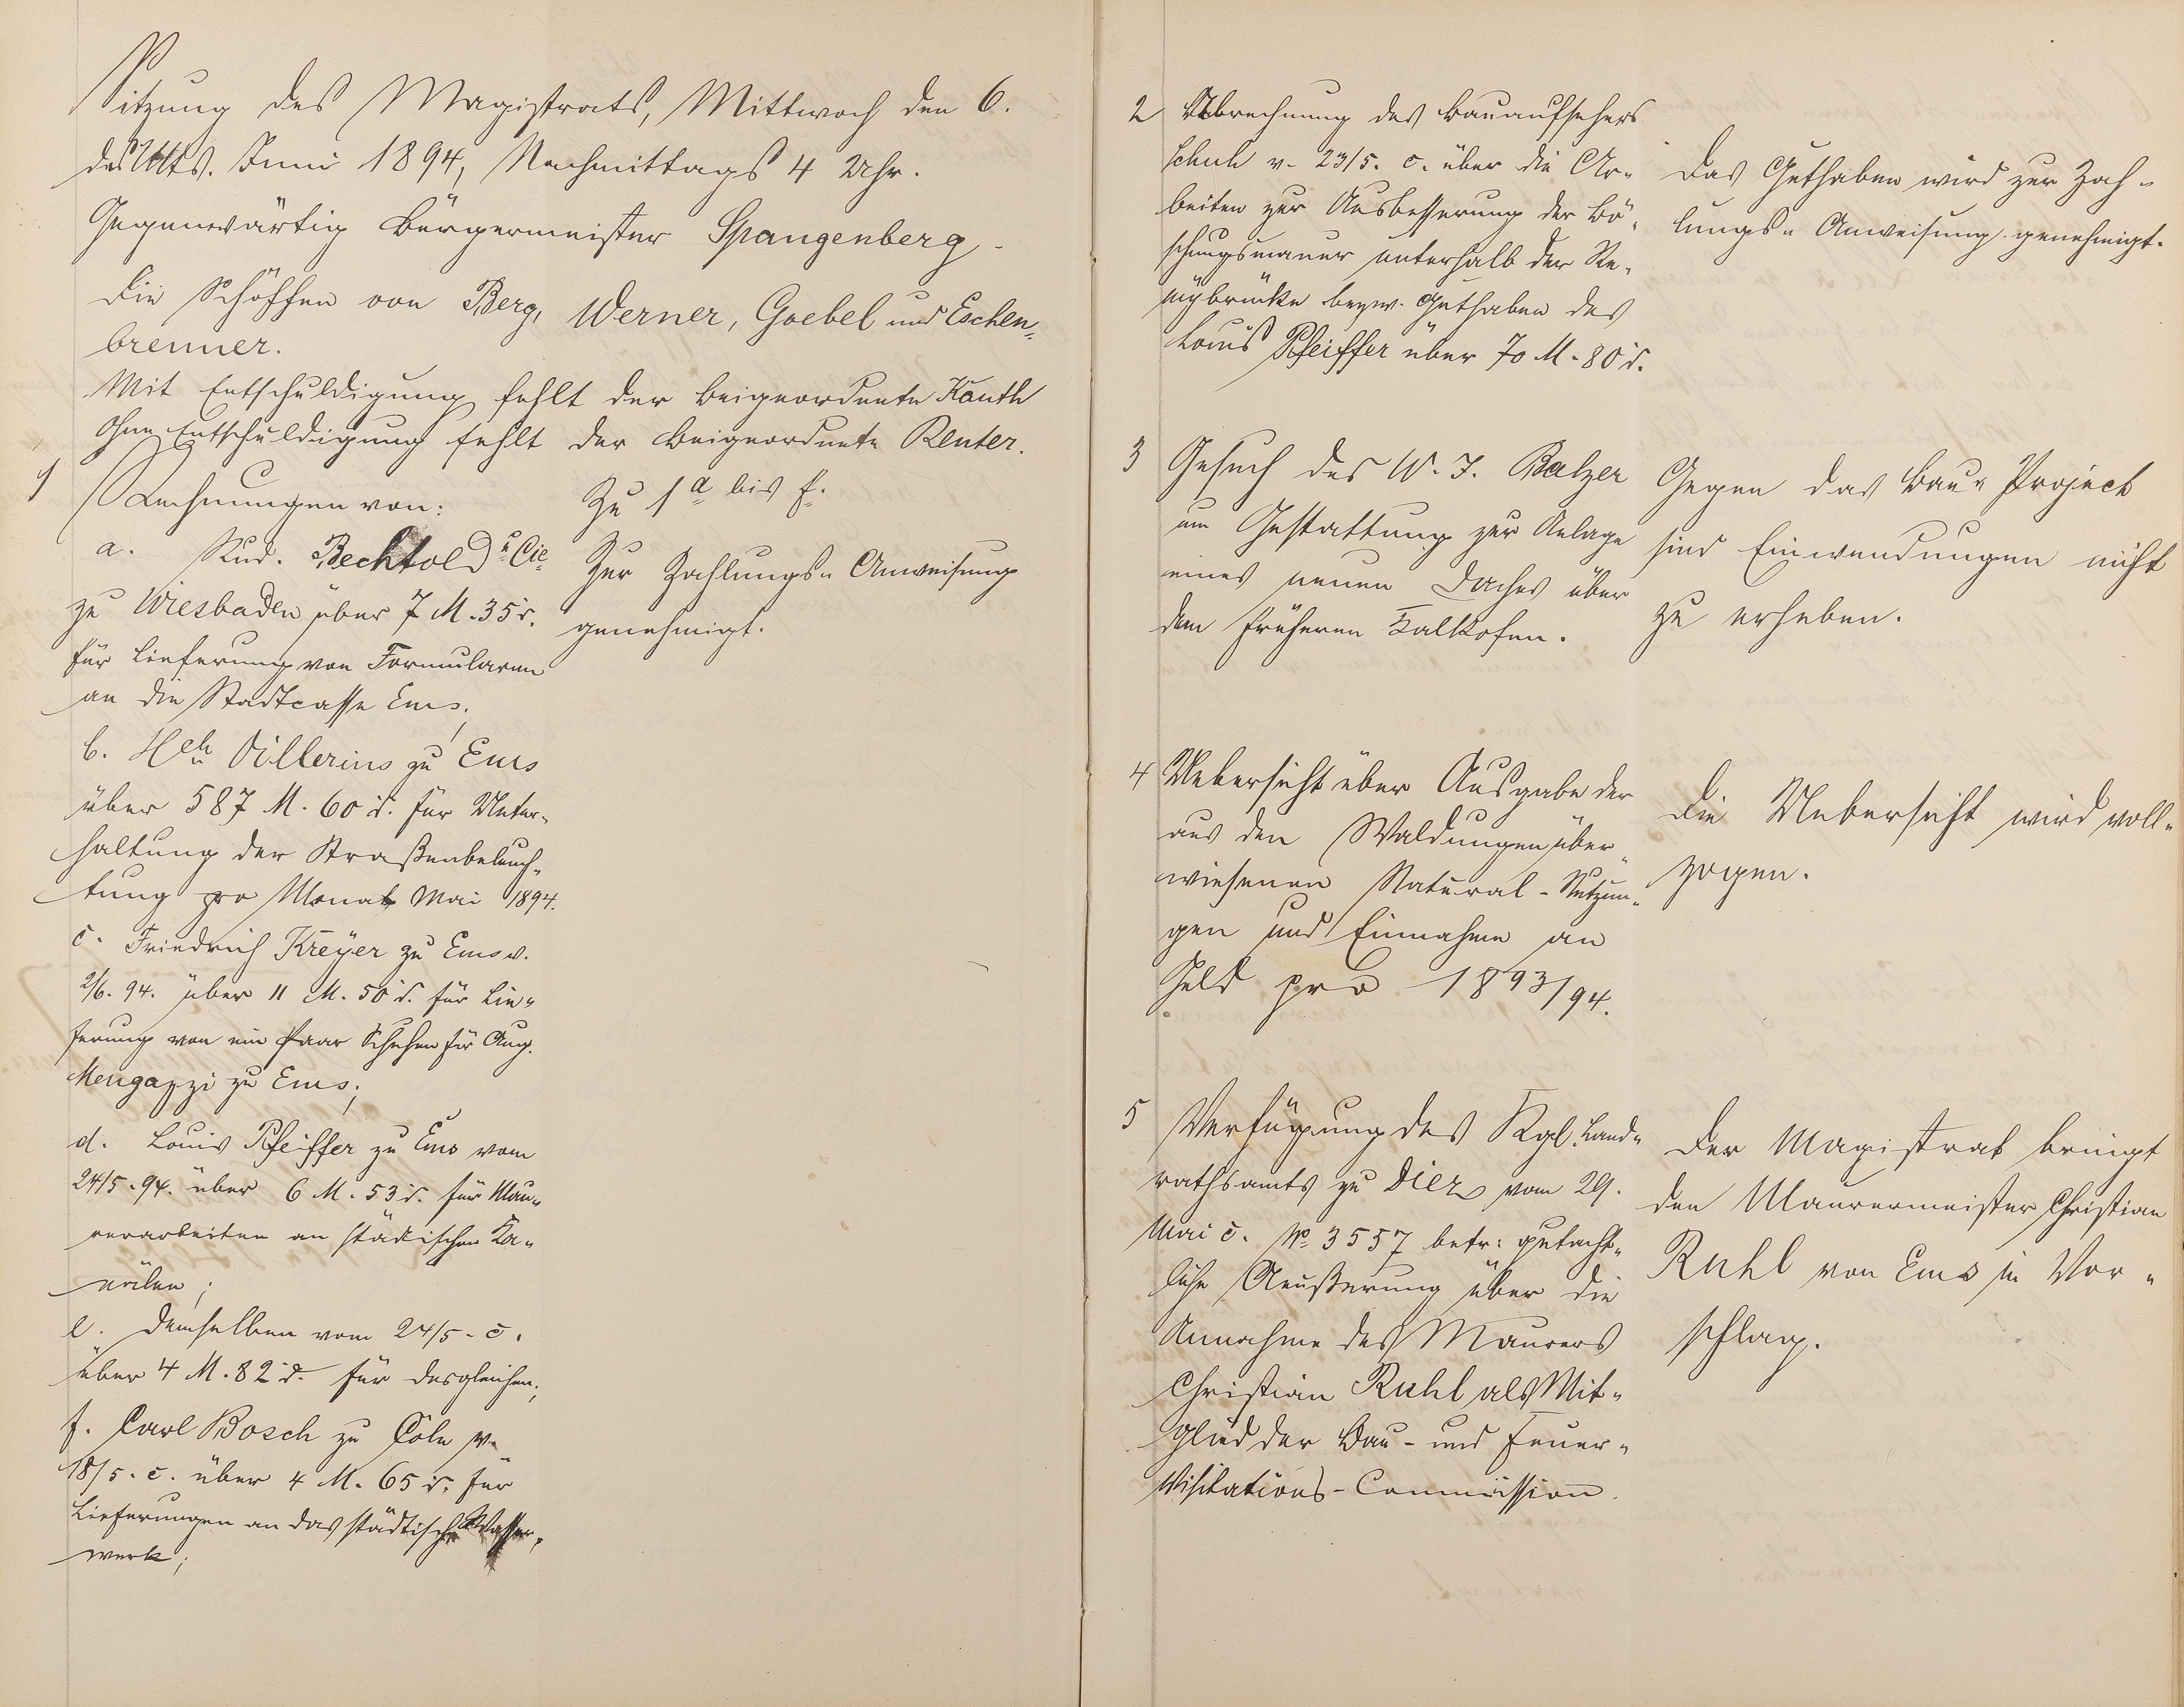 Sitzung des Magistrats, Mittwoch den 6.
des Mts. Juni 1894, Nachmittags 4 Uhr.
Gegenwärtig Bürgermeister Spangenberg.
Die Schöffen von Berg, Werner, Goebel und Eschen-
brenner.
Mit Entschuldigung fehlt der Beigeordnete Kauth
Ohne Entschuldigung fehlt der Beigeordnete Reuter.
1
Rechnungen von:
a. Rud. Bechtold u. Cie
zu Wiesbaden über 7 M. 35 d.
für Lieferung von Formularen
an die Stadtcasse Ems;
b. Hch Villerius zu Ems
über 587 M. 60 d. für Unter-
haltung der Straßenbeleuch-
tung pro Monat Mai 1894.
c. Friedrich Kreyer zu Ems v.
2/6. 94. über 11 M. 50 d. für Lie-
ferung von ein Paar Schuhen für Aug.
Mengazzi zu Ems;
d. Louis Pfeiffer zu Ems vom
24/5. 94. über 6 M. 53 d. für Mau-
rerarbeiten an städtischen Ka-
nälen;
e. demselben vom 24/5. c.
über 4 M. 82 d. für desgleichen;
f. Carl Bosch zu Cöln v.
18/5. c. über 4 M. 65 d. für
Lieferungen an das städtische Wasser-
werk;
Zu 1 a bis f.
Zur Zahlungs-Anweisung
genehmigt.
2 Abrechnung des Bauaufsehers
Schuh v. 23/5. c. über die Ar-
beiten zur Ausbesserung der Bö-
schungsmauer unterhalb der Re-
mybrücke bezw. Guthaben des
Louis Pfeiffer über 70 M. 80 d.
Das Guthaben wird zur Zah-
lungs-Anweisung genehmigt.
3 Gesuch des W. J. Balzer
um Gestattung zur Anlage
eines neuen Daches über
dem früheren Kalkofen.
Gegen das Bau-Project
sind Einwendungen nicht
zu erheben.
4 Uebersicht über Ausgabe der
aus den Waldungen über-
wiesenen Natural-Nutzun-
gen und Einnahme an
Geld pro 1893/94.
Die Uebersicht wird voll-
zogen.
5 Verfügung des Kgl. Land-
rathsamts zu Diez vom 29.
Mai c. No 3557 betr: gutacht-
liche Aeußerung über die
Annahme des Maurers
Christian Ruhl als Mit-
glied der Bau- und Feuer-
Visitations-Commission.
Der Magistrat bringt
den Maurermeister Christian
Ruhl von Ems in Vor-
schlag.